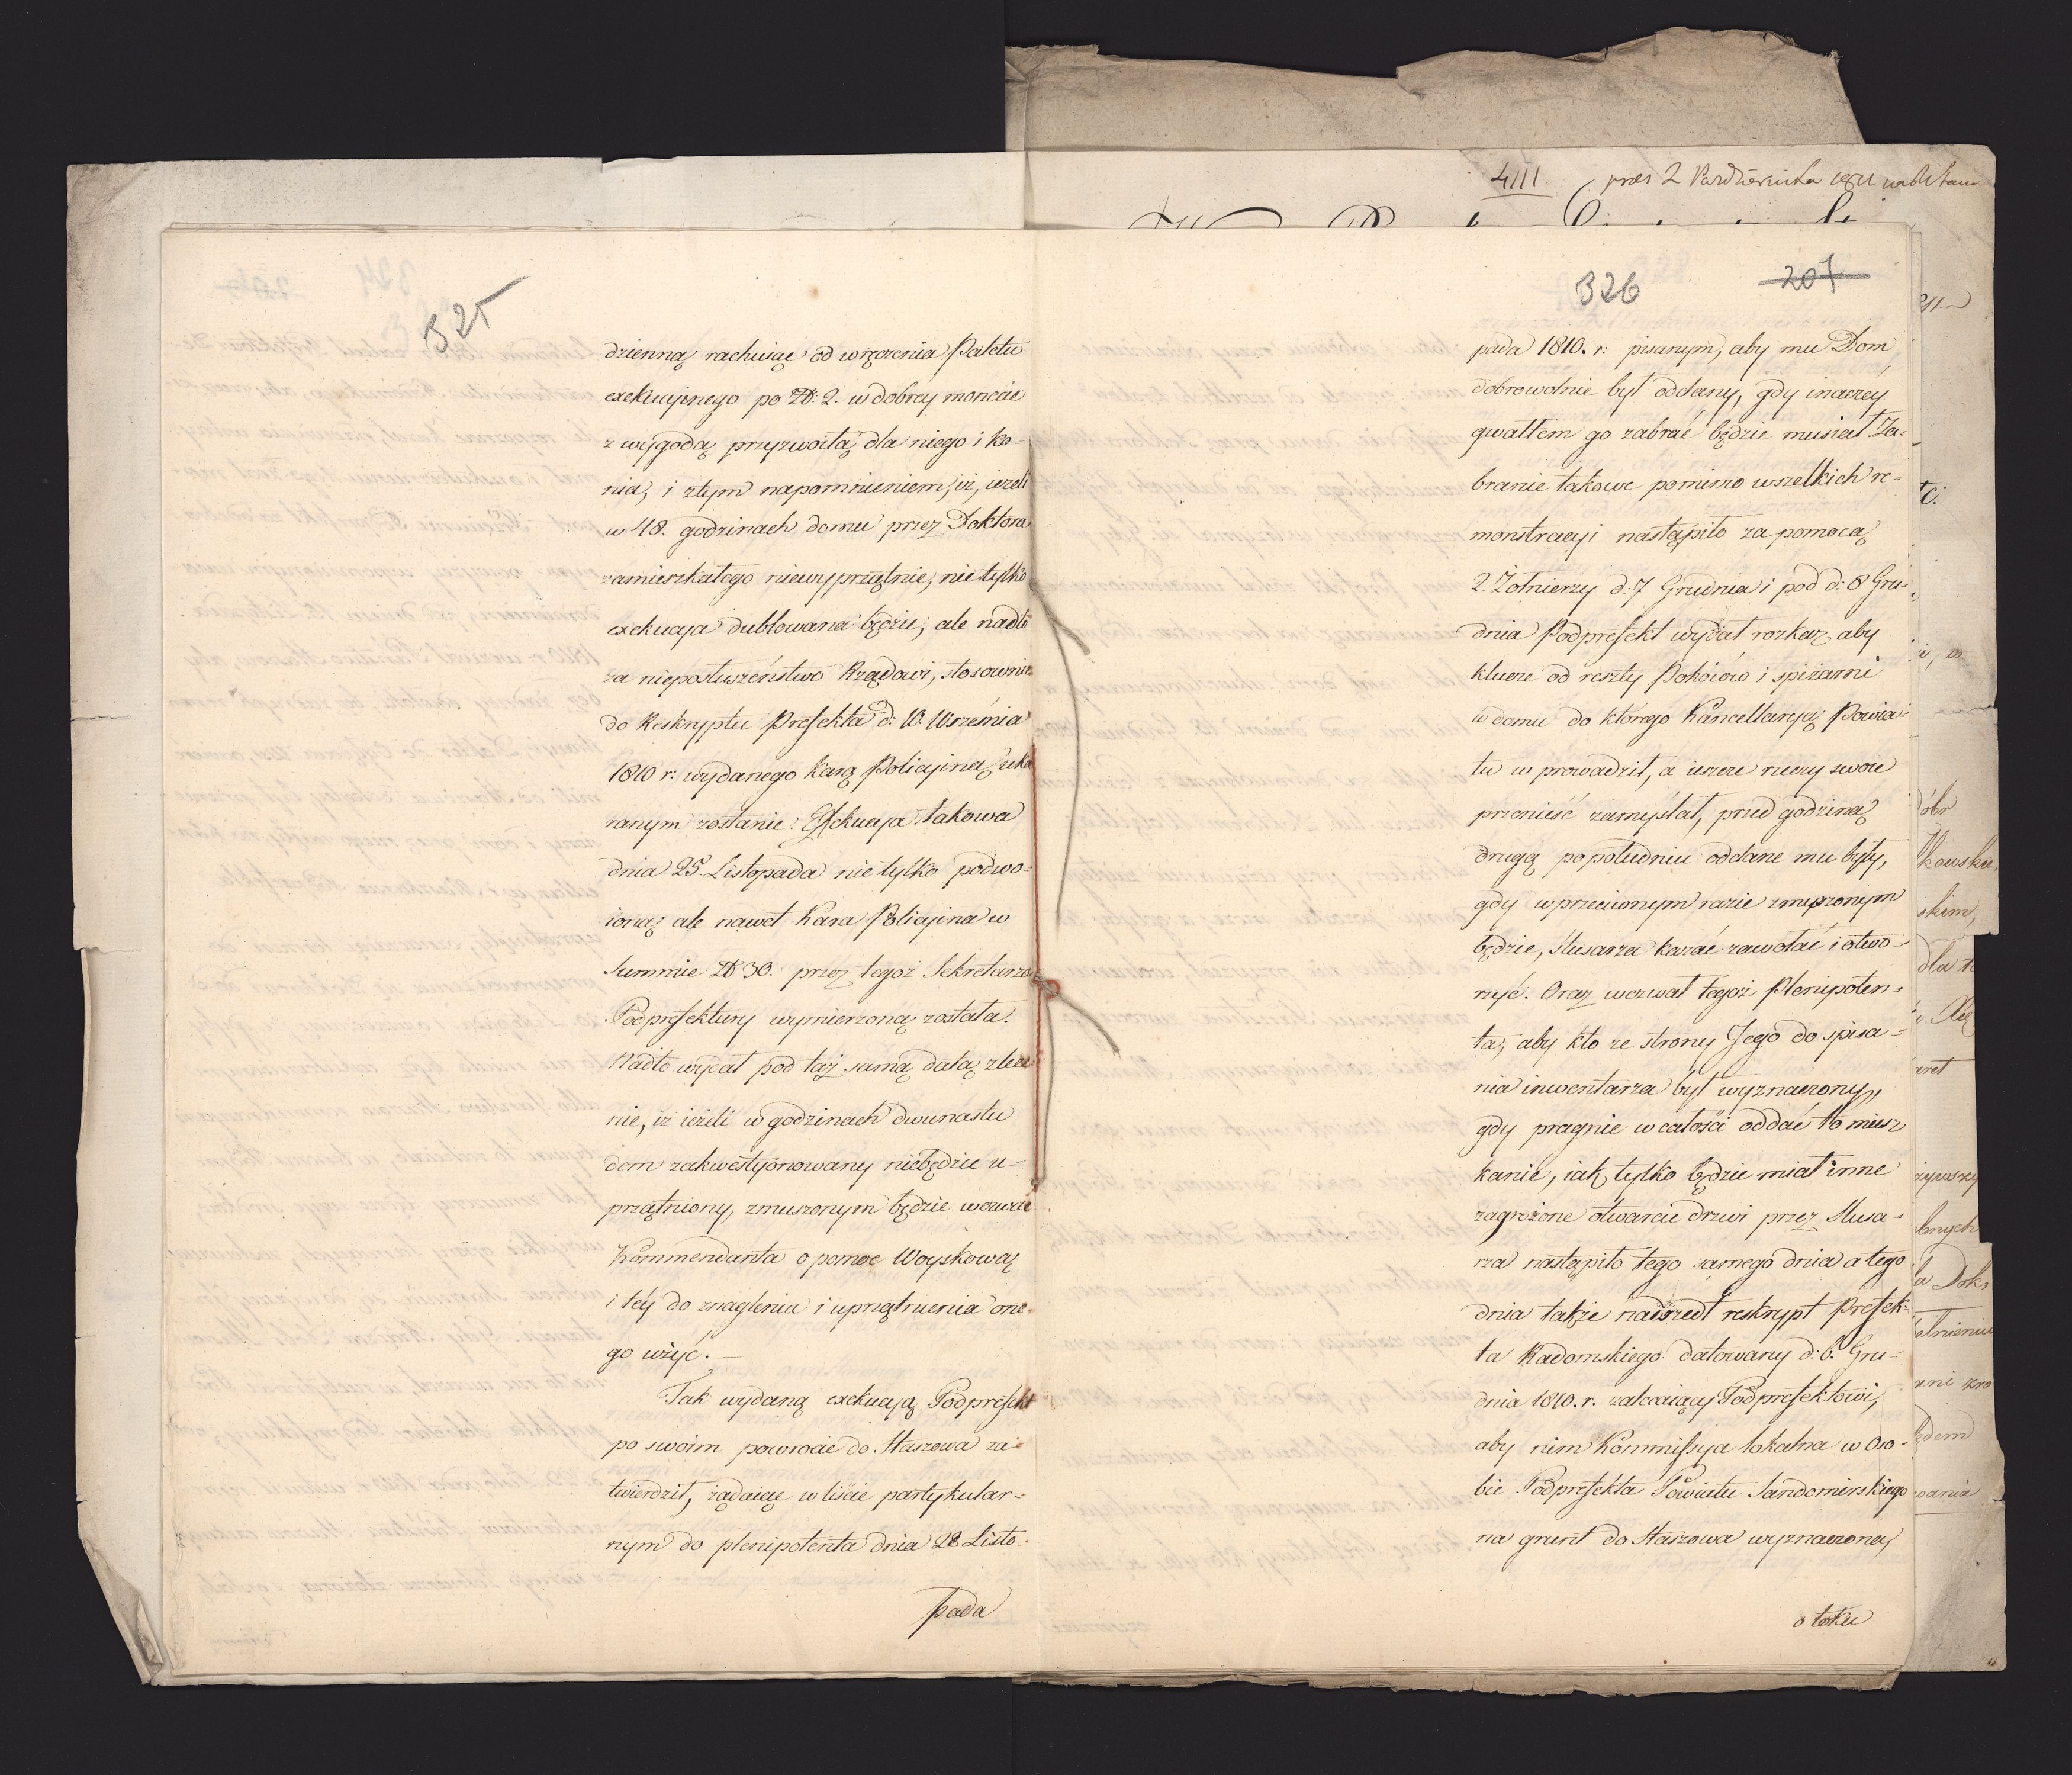 325
dzienną rachuiąc od wręczenia Paletu
exekucyjnego po Zł: 2. w dobrey monecie
z wygodą przyzwoitą dla niego i ko-
nia, i z tym napomnieniem, iż, ieżeli
w 48. godzinach domu przez Doktora
zamieszkałego niewyprzątnie, nie tylko
exekucya dublowana będzie, ale nadto
za nieposłuszeństwo Rządowi, stosownie
do Reskryptu Prefekta d: 10. Września
1810 r: wydanego karą Policyjną uka
ranym zostanie. Exekucya takowa
dnia 25. Listopada nie tylko podwo-
ioną ale nawet Kara Policyjna w
Summie Zł 30. przez tegoż Sekretarza
Podprefektury wymierzoną została.
Nadto wydał pod tąż samą datą zlece
nie, iż ieżeli w godzinach dwunastu
dom zakwestyonowany niebędzie u-
przątniony, zmuszonym będzie wezwać
Kommendanta o pomoc Woyskową
i téy do znaglenia i uprzątnienia one-
go użyć. —
Tak wydaną exekucyą Podprefekt
po swoim powrocie do Staszowa za-
twierdził, żądaiąc w liście partykular-
nym do plenipotenta dnia 28 Listo-
pada
4111. prez 2 Października 1811
326 207
pada 1810. r: pisanym, aby mu Dom
dobrowolnie był oddany, gdy inaczey
gwałtem go zabrać będzie musiał. Za-
branie takowe pomimo wszelkich re-
monstracyi nastąpiło za pomocą
2. Żołnierzy d: 7 Grudnia i pod d: 8 Gru-
dnia Podprefekt wydał rozkaz, aby
klucze od reszty Pokóiów i spiżarni
w domu do którego Kancellaryą Powia-
tu w prowadził, a ieszcze rzeczy swoie
przenieść zamyślał, przed godziną
drugą popołudniu oddane mu były,
gdy w przeciwnym razie zmuszonym
będzie, Slusarza kazać zawołać i otwo-
rzyć. Oraz wezwał tegoż Plenipoten-
ta, aby kto ze strony Jego do spisa-
nia inwentarza był wyznaczony,
gdy pragnie w całości oddać to miesz
kanie, iak tylko będzie miał inne
zagrożone otwarcie drzwi przez Slusa-
rza nastąpiło tego samego dnia a tego
dnia także nadszedł reskrypt Prefek-
ta Radomskiego datowany d: 6. Gru-
dnia 1810. r. zalecaiący Podprefektowi,
aby nim Kommissya lokalna w Oso-
bie Podprefekta Powiatu Sandomirskiego
na grunt do Staszowa wyznaczona,
o toku